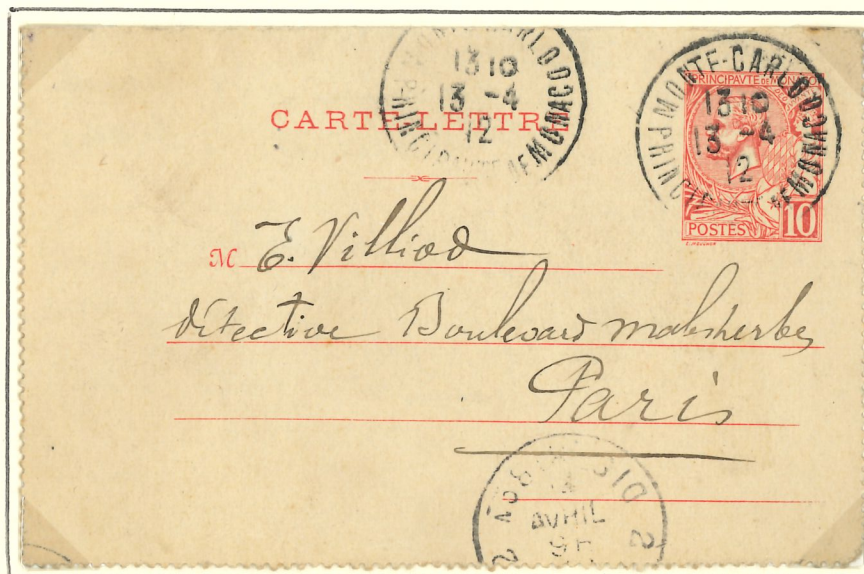 MONTE-CARLO
13 10
13 -4
12
PRINCIPAUTÉ DE MONACO
MONTE-CARLO
13 10
13 -4
12
PRINCIPAUTÉ DE MONACO
PRINCIPAVTE DE MONACO
POSTES 10
CARTE-LETTRE
M E. Villiod
détective Boulevard malesherbes
Paris
AVRIL